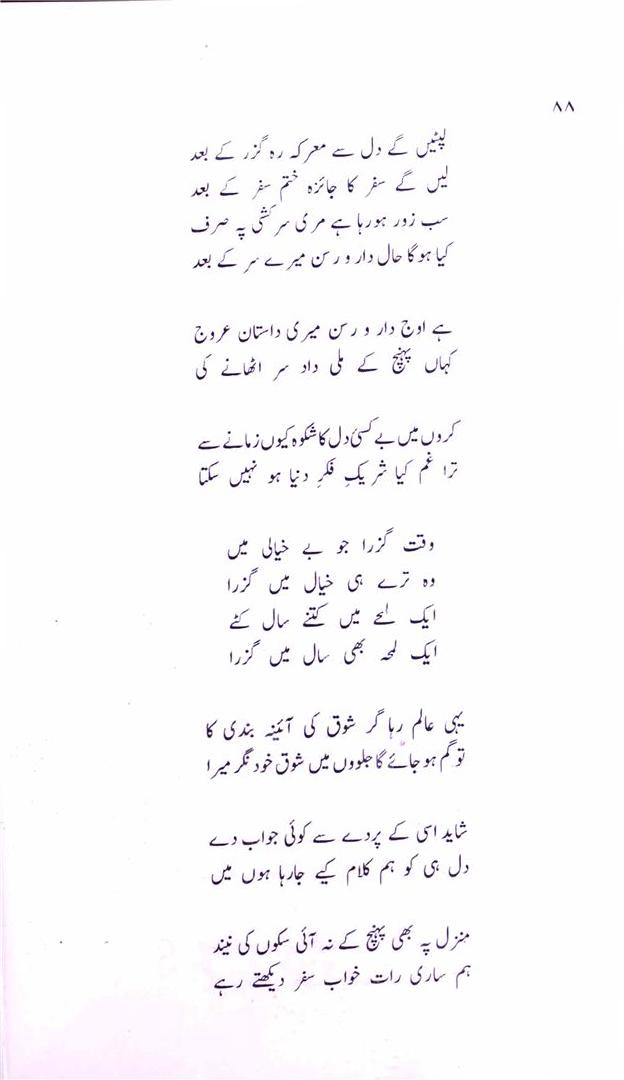 ۸۸
لپٹیں گے دل سے معرکہ رہ گزر کے بعد
لیں گے سفر کا جائزہ ختم سفر کے بعد
سب زور ہورہا ہے مری سرکشی پہ صرف
کیا ہوگا حال دار و رسن میرے سر کے بعد
ہے اوج دار و رسن میری داستان عروج
کہاں پہنچ کے ملی داد سر اٹھانے کی
کروں میں بے کسیٔ دل کا شکوہ کیوں زمانے سے
ترا غم کیا شریکِ فکرِ دنیا ہو نہیں سکتا
وقت گزرا جو بے خیالی میں
وہ ترے ہی خیال میں گزرا
ایک لمحے میں کتنے سال کٹے
ایک لمحہ بھی سال میں گزرا
یہی عالم رہا گر شوق کی آئینہ بندی کا
تو گم ہو جائے گا جلووں میں شوق خود نگر میرا
شاید اسی کے پردے سے کوئی جواب دے
دل ہی کو ہم کلام کیے جارہا ہوں میں
منزل پہ بھی پہنچ کے نہ آئی سکوں کی نیند
ہم ساری رات خواب سفر دیکھتے رہے